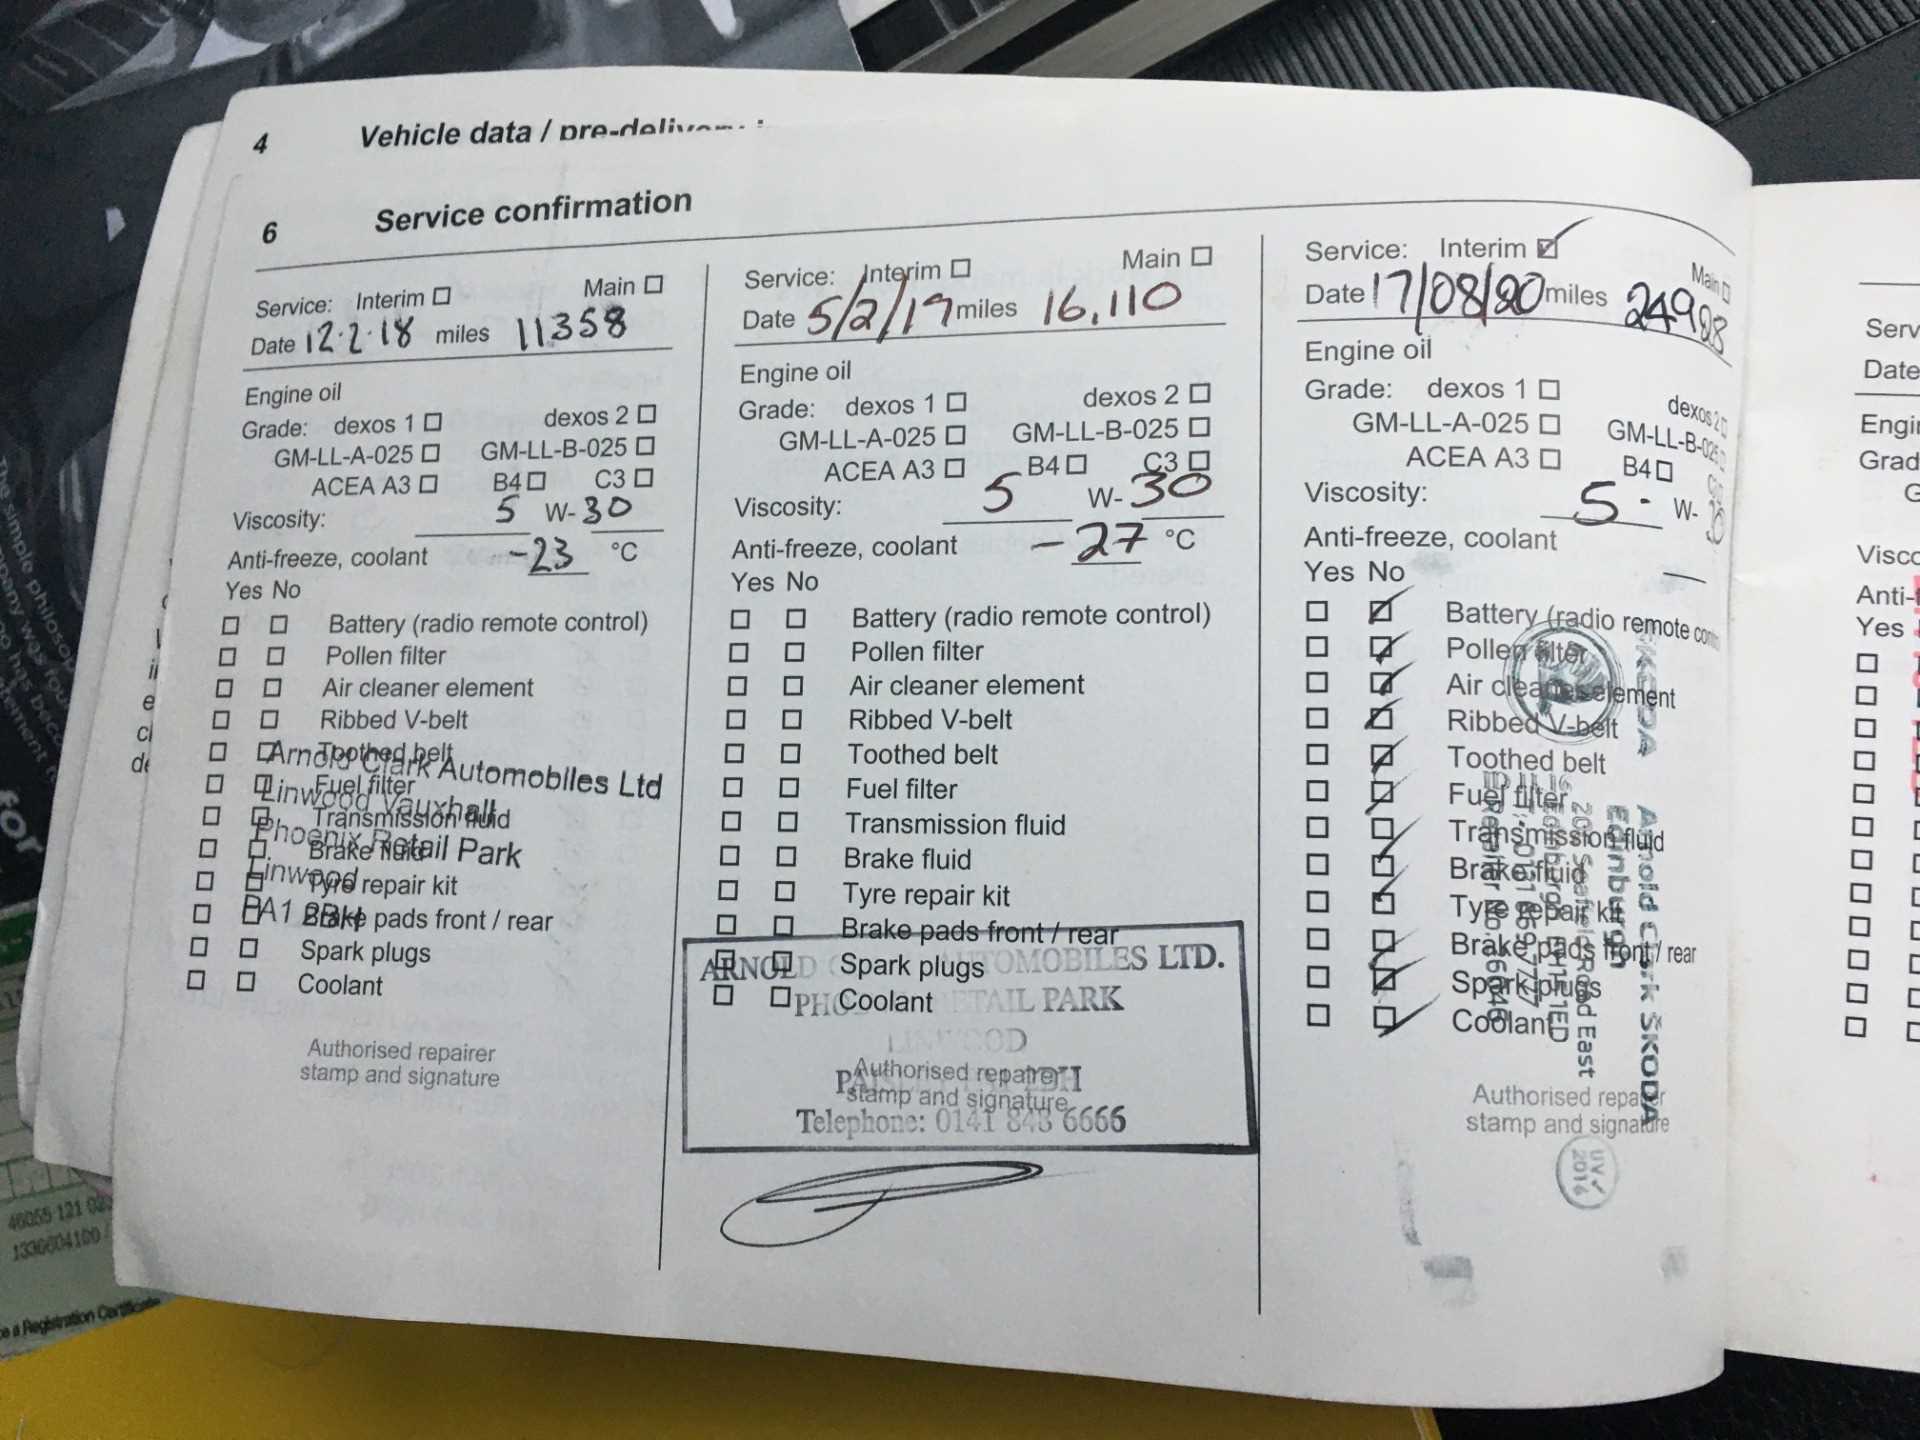 4 Vehicle data / pre-delivery
6 Service confirmation
Service: Interim Main
Date 12·2·18 miles 11358
Engine oil
Grade: dexos 1 dexos 2
GM-LL-A-025 GM-LL-B-025
ACEA A3 B4 C3
Viscosity: 5 W-30
Anti-freeze, coolant -23 °C
Yes No
Battery (radio remote control)
Pollen filter
Air cleaner element
Ribbed V-belt
Toothed belt
Fuel filter
Transmission fluid
Brake fluid
Tyre repair kit
Brake pads front / rear
Spark plugs
Coolant
Arnold Clark Automobiles Ltd
Linwood Vauxhall
Phoenix Retail Park
Linwood
PA1 2BH
Authorised repairer
stamp and signature
Service: Interim Main
Date 5/2/19 miles 16,110
Engine oil
Grade: dexos 1 dexos 2
GM-LL-A-025 GM-LL-B-025
ACEA A3 B4 C3
Viscosity: 5 W-30
Anti-freeze, coolant -27 °C
Yes No
Battery (radio remote control)
Pollen filter
Air cleaner element
Ribbed V-belt
Toothed belt
Fuel filter
Transmission fluid
Brake fluid
Tyre repair kit
Brake pads front / rear
Spark plugs
Coolant
ARNOLD AUTOMOBILES LTD.
RETAIL PARK
LINWOOD
Authorised repairer
stamp and signature
Telephone: 0141 848 6666
Service: Interim Main
Date 17/08/20 miles 24988
Engine oil
Grade: dexos 1 dexos 2
GM-LL-A-025 GM-LL-B-025
ACEA A3 B4
Viscosity: 5 - W- 30
Anti-freeze, coolant —
Yes No
Battery (radio remote
Pollen filter
Air cleaner element
Ribbed V-belt
Toothed belt
Fuel filter
Transmission fluid
Brake fluid
Tyre repair kit
Brake pads front / rear
Spark plugs
Coolant
ŠKODA
Arnold Clark ŠKODA
Edinburgh
Seafield Road East
Authorised repairer
stamp and signature
UV✓
2016
Date
Yes
46055 121
a Registration Certificate
The simple
for